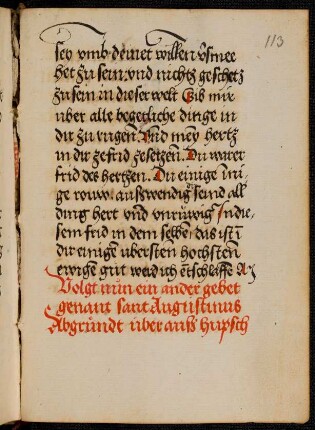 113
sey vmb deinet willen v̊smee
het zu sein vnd nichtz geschetz
zu sein in dieser welt Gib mir
uber alle begerliche dinge in
dir zu rugen Vnd mey hertz
in dir zefrid zesetzen Du warer
frid des hertzen Du einige
ge rouw auszwendig seind all
ding hert vnd vnruwig In die
sem frid in dem selben das ist ī
dir einigē ubersten hochstē
ewigē gut werd ich ētschlaffe
Volgt nun ein ander gebet
genant sant Augustinus
Abgrundt uber ausz hupsch